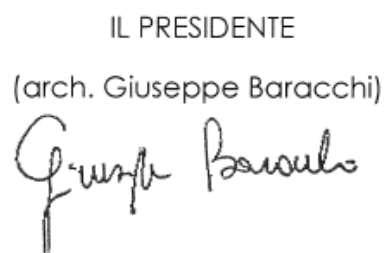 IL PRESIDENTE
(arch. Giuseppe Baracchi)
Giuseppe Baracchi